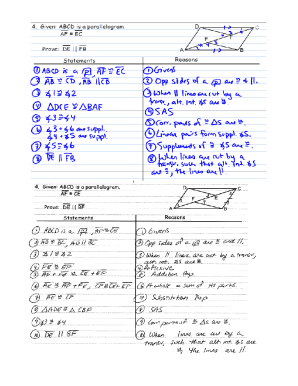 4. Given: ABCD is a parallelogram.
AF ≅ EC
Prove: DE || FB
Statements Reasons
① ABCD is a ▱, AF ≅ EC ① Givens
② AB ≅ CD, AB || CD ② Opp sides of a ▱ are ≅ & ||.
③ ∡1 ≅ ∡2 ③ When || lines are cut by a
trans, alt. int. ∡s are ≅.
④ △DCE ≅ △BAF ④ SAS
⑤ ∡3 ≅ ∡4 ⑤ Corr. parts of ≅ △s are ≅.
⑥ ∡3 + ∡6 are suppl. ⑥ Linear pairs form suppl. ∡s.
⑦ ∡5 ≅ ∡6 ⑦ Supplements of ≅ ∡s are ≅.
⑧ DE || FB ⑧ When lines are cut by a
trans. such that alt. int ∡s
are ≅, the lines are ||
4. Given: ABCD is a parallelogram.
AF ≅ CE
Prove: DE || FB
Statements Reasons
① ABCD is a ▱, AF ≅ CE ① Givens
② Opp sides of a ▱ are ≅ and ||.
③ ∡1 ≅ ∡2 ③ When || lines are cut by a trans,
alt. int. ∡s are ≅.
④ EF ≅ EF ④ Reflexive
⑤ Addition Prop
⑥ A whole = sum of its parts.
⑦ Substitution Prop
⑧ SAS
⑨ ∡3 ≅ ∡4 ⑨ Corr parts of ≅ △s are ≅.
⑩ DE || BF ⑩ When lines are cut by a
transv. such that alt int ∡s are
≅, the lines are ||.